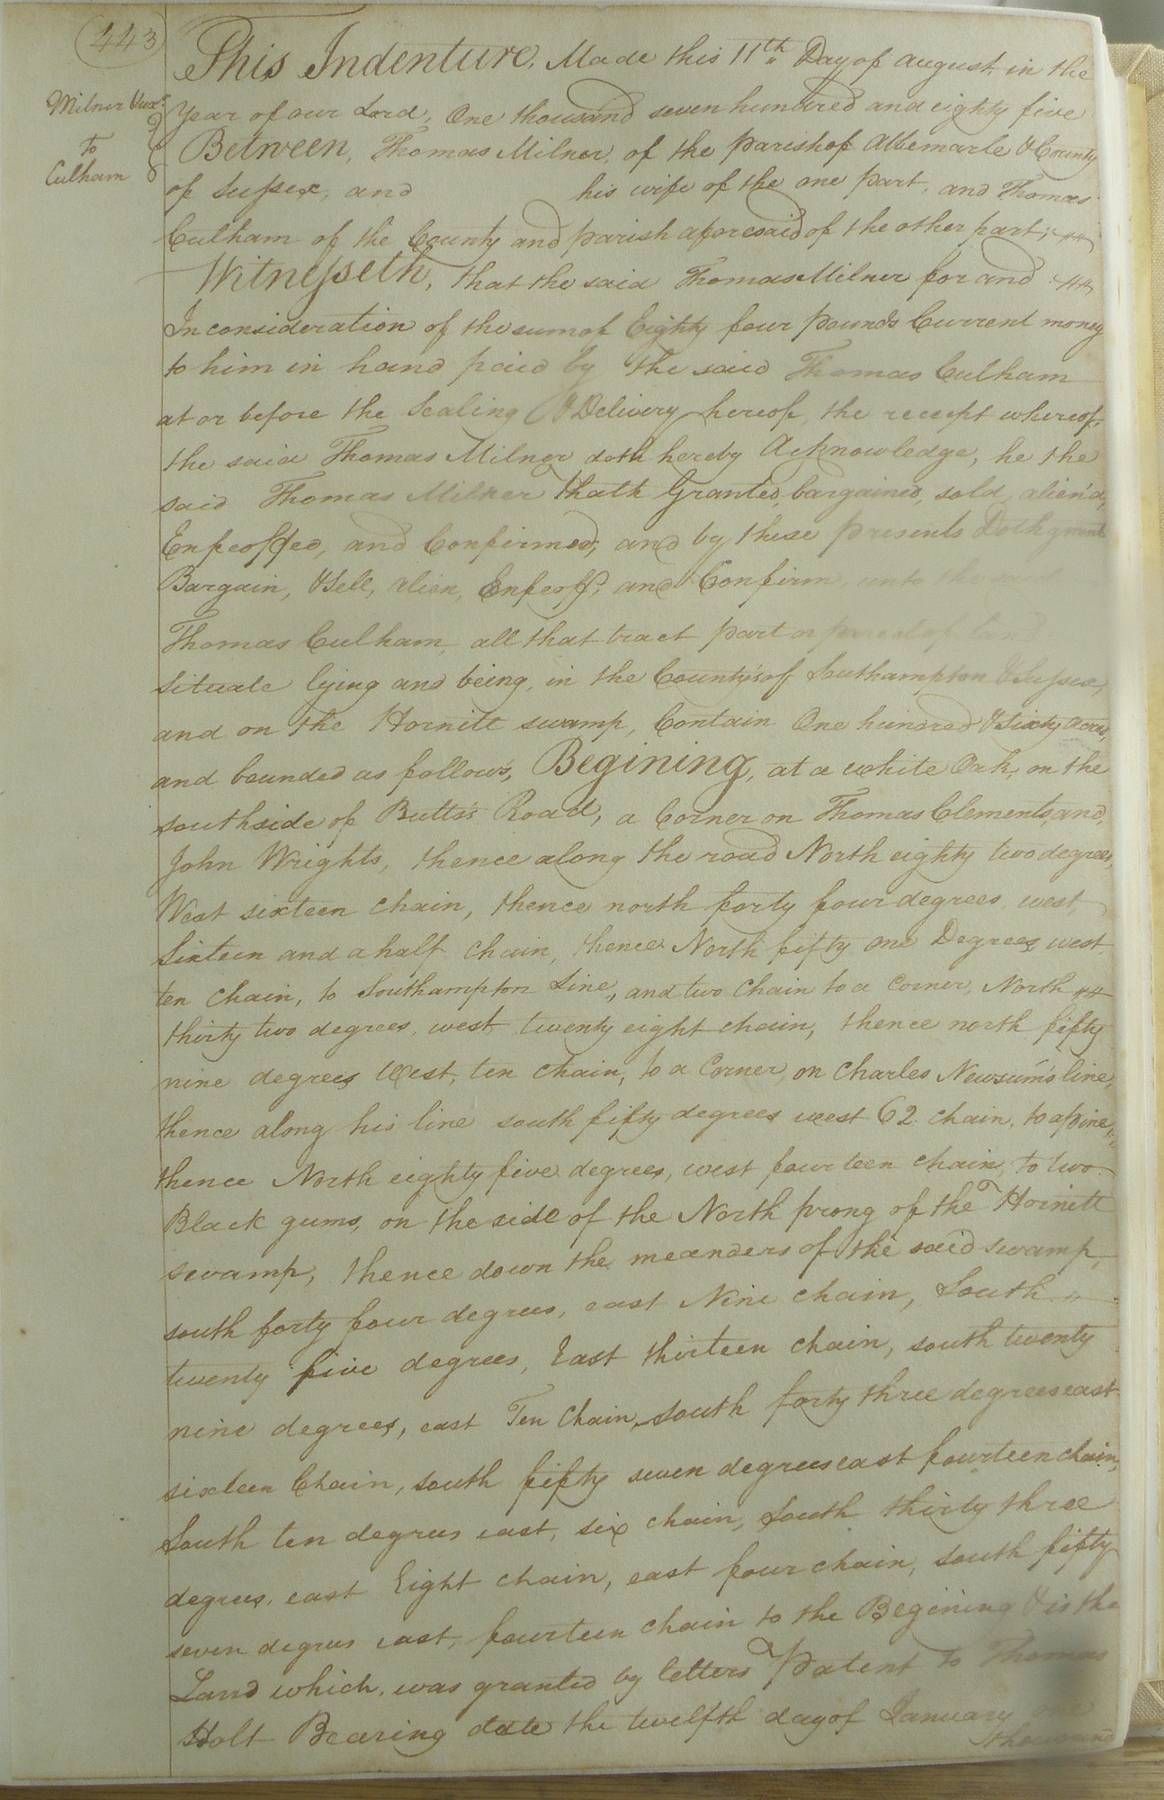 443
Milner Uxr
to
Culham
This Indenture, Made this 11th Day of august in the
Year of our Lord, One thousand seven hundred and eighty five
Between, Thomas Milner, of the parish of Albemarle & County
of Sussex, and his wife of the one part, and Thomas
Culham of the County and parish aforesaid of the other part,
Witnesseth, that the said Thomas Milner for and
In consideration of the sum of Eighty four pounds Current money
to him in hand paid by the said Thomas Culham
at or before the Sealing & Delivery hereof, the receipt whereof,
the said Thomas Milner doth hereby Acknowledge, he the
said Thomas Milner hath Granted, bargained, sold, alien'd,
Enfeoffed, and Confirmed, and by these presents Doth grant
Bargain, & Sell, alien, Enfeoff, and Confirm, unto the said
Thomas Culham, all that tract part or parcel of land
situate lying and being, in the County's of Southampton & Sussex,
and on the Hornitt swamp, Contain One hundred & Sixty acres,
and bounded as follows, Begining, at a white Oak, on the
southside of Butts's Road, a Corner on Thomas Clements, and,
John Wrights, thence along the road North eighty two degrees,
West sixteen chain, thence north forty four degrees, west,
Sixteen and a half chain, thence North fifty one Degrees west
ten chain, to Southampton Line, and two chain to a Corner, North
thirty two degrees, west twenty eight chain, thence north fifty
nine degrees West, ten chain, to a Corner, on Charles Newsum's line,
thence along his line south fifty degrees west 62 chain, to a pine,
thence North eighty five degrees, west fourteen chain, to two
Black gums, on the side of the North prong of the Hornitt
swamp, thence down the meanders of the said swamp,
south forty four degrees, east Nine chain, South
twenty five degrees, East thirteen chain, south twenty
nine degrees, east Ten Chain, south forty three degrees east
sixteen Chain, south fifty seven degrees east fourteen chain,
South ten degrees east, six chain, South thirty three
degrees, east Eight chain, east four chain, south fifty
seven degrees east, fourteen chain to the Begining & is the
Land which, was granted by letters Patent to Thomas
Holt Bearing date the twelfth day of January one
thousand